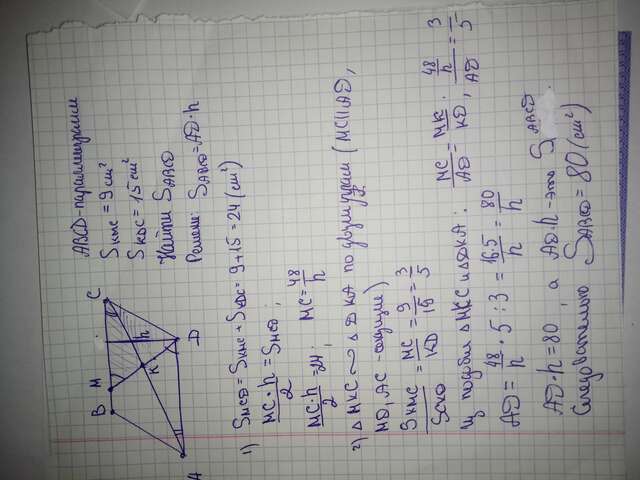 ABCD-параллелограмм
S_KMC = 9 см²
S_KDC = 15 см²
Найти S_ABCD
Решение: S_ABCD = AD·h
B M C
K h
A D
1) S_MCD = S_KMC + S_KDC = 9+15 = 24 (см²)
MC·h/2 = S_MCD;
MC·h/2 = 24; MC = 48/h
2) △MKC ∾ △DKA по двум углам (MC||AD,
MD, AC - секущие)
S_KMC/S_CKD = MC/KD = 9/15 = 3/5
Из подобия △MKC и △DKA: MC/AD = MK/KD, 48/h/AD = 3/5
AD = 48/h · 5 : 3 = 16·5/h = 80/h
AD·h = 80, а AD·h - это S_ABCD.
Следовательно S_ABCD = 80 (см²)